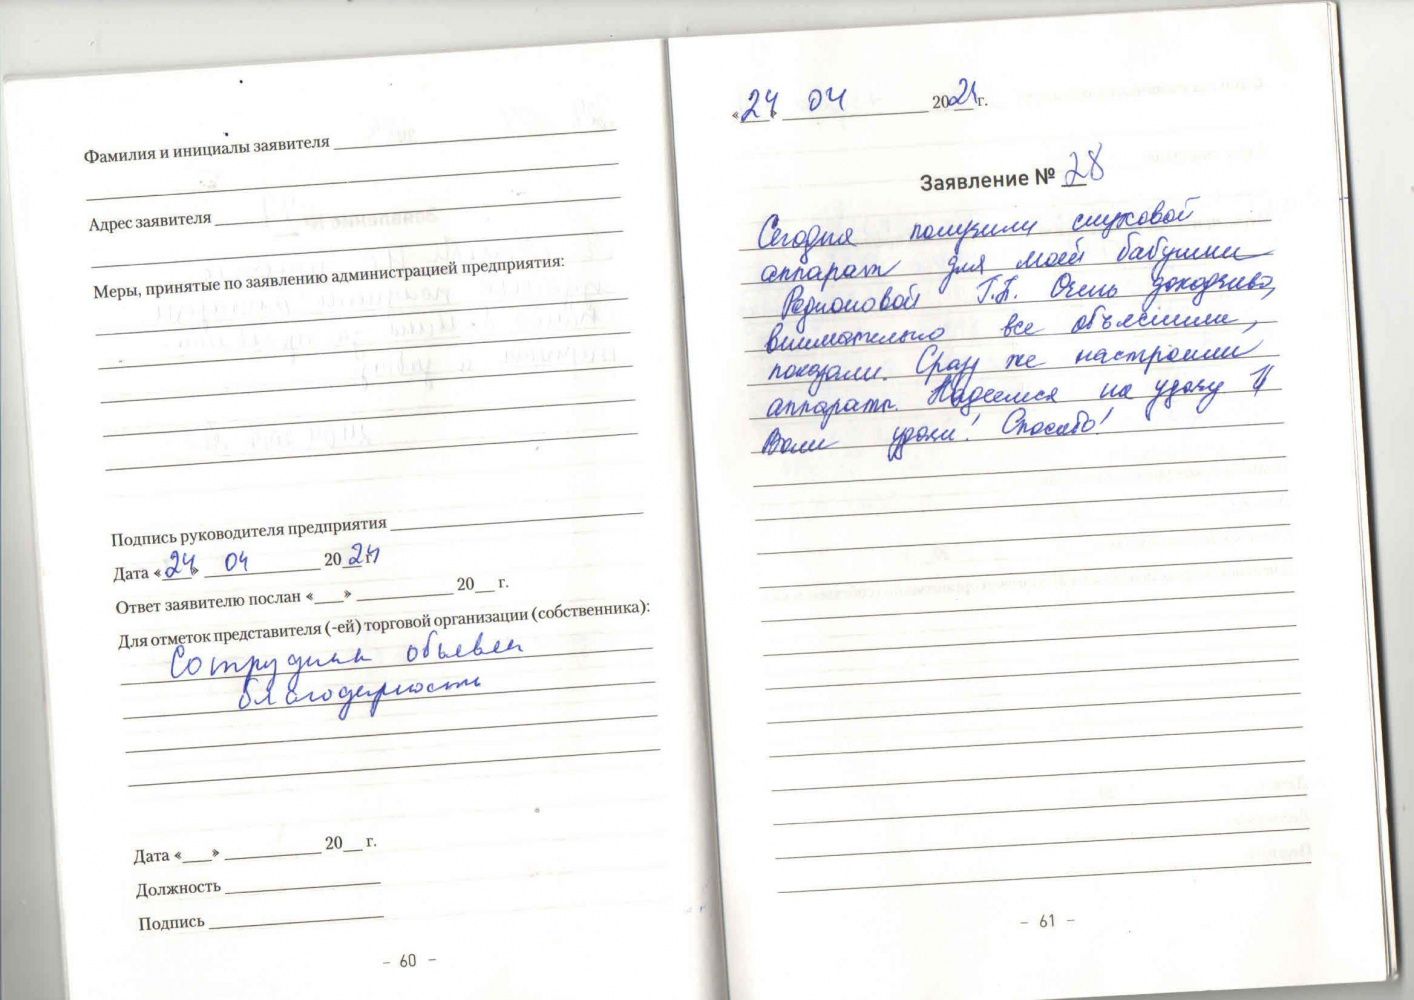 Фамилия и инициалы заявителя
Адрес заявителя
Меры, принятые по заявлению администрацией предприятия:
Подпись руководителя предприятия
Дата «24» 04 2024
Ответ заявителю послан «___» ________ 20__ г.
Для отметок представителя (-ей) торговой организации (собственника):
Сотрудник объявлен
благодарность
Дата «___» ________ 20__ г.
Должность
Подпись
– 60 –
«24» 04 2024г.
Заявление № 28
Сегодня получили слуховой
аппарат для моей бабушки
Родионовой Г.П. Очень доходчиво,
внимательно все объяснили,
показали. Сразу же настроили
аппараты. Надеемся на удачу И
Вам удачи! Спасибо!
– 61 –